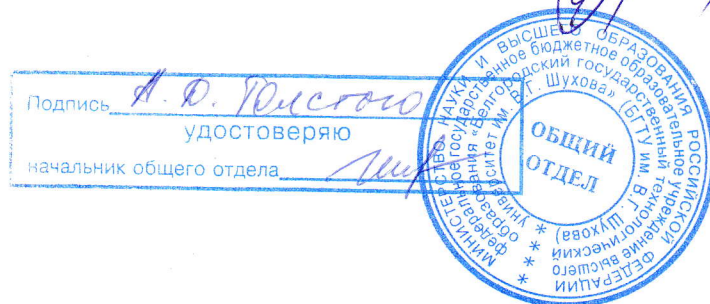 Подпись А. Д. Толстого
удостоверяю
начальник общего отдела
МИНИСТЕРСТВО НАУКИ И ВЫСШЕГО ОБРАЗОВАНИЯ РОССИЙСКОЙ ФЕДЕРАЦИИ
федеральное государственное бюджетное образовательное учреждение высшего
образования «Белгородский государственный технологический
университет им. В.Г. Шухова» (БГТУ им. В.Г. Шухова)
ОБЩИЙ
ОТДЕЛ